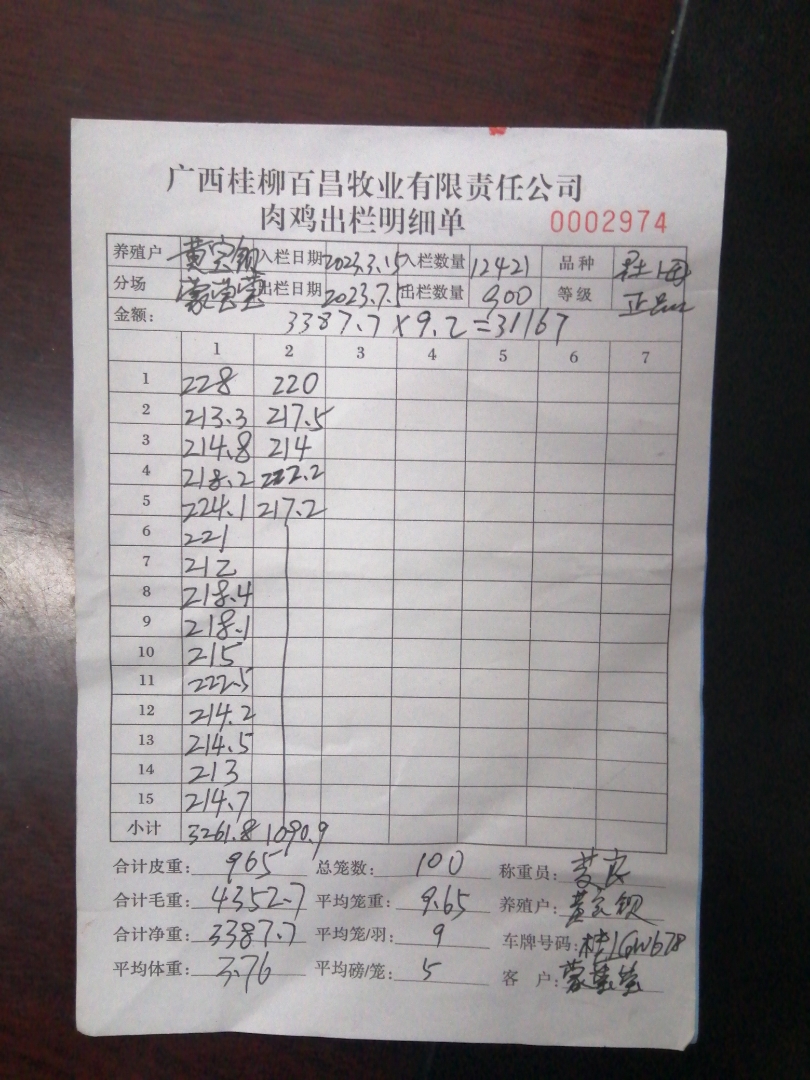 广西桂柳百昌牧业有限责任公司
肉鸡出栏明细单 0002974
养殖户 入栏日期 2023.3.15 入栏数量 12421 品种
分场 出栏日期 2023.7.5 出栏数量 900 等级 正品
金额: 3387.7×9.2=31167
1 2 3 4 5 6 7
1 228 220
2 213.3 217.5
3 214.8 214
4 218.2 222.2
5 224.1 217.2
6 221
7 212
8 218.4
9 218.1
10 215
11 222.5
12 214.2
13 214.5
14 213
15 214.7
小计 3261.8 1090.9
合计皮重: 965 总笼数: 100 称重员:
合计毛重: 4352.7 平均笼重: 9.65 养殖户:
合计净重: 3387.7 平均笼/羽: 9 车牌号码:
平均体重: 3.76 平均磅/笼: 5 客户: